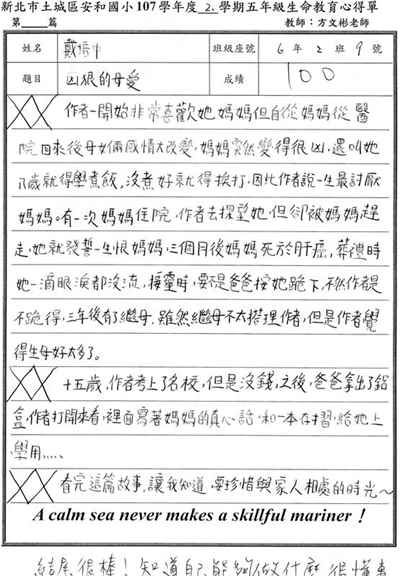 新北市土城區安和國小107學年度 2 學期五年級生命教育心得單
第 篇 教師：方文彬老師
姓名 戴培 班級座號 6 年 2 班 9 號
題目 凶狠的母愛 成績 100
作者一開始非常喜歡她媽媽但自從媽媽從醫
院回來後母女倆感情大改變，媽媽突然變得很凶，還叫她
八歲就得學煮飯，沒煮好菜就得挨打，因此作者說一生最討厭
媽媽。有一次媽媽住院，作者去探望她但卻被媽媽趕
走，她就發誓一生恨媽媽，三個月後媽媽死於肝癌，葬禮時
她一滴眼淚都沒流，接靈時，要不是爸爸按她跪下，不然作者是
不跪得，三年後有了繼母，雖然繼母不太搭理作者，但是作者覺
得生母好太多了。
十五歲，作者考上了名校，但是沒錢，之後，爸爸拿出了鋁
盒，作者打開來看，裡面寫著媽媽的真心話，和一本存摺，給她上
學用.....
看完這篇故事，讓我知道，要珍惜與家人相處的時光～
A calm sea never makes a skillful mariner！
結尾很棒！知道自己能夠做什麼 很懂事